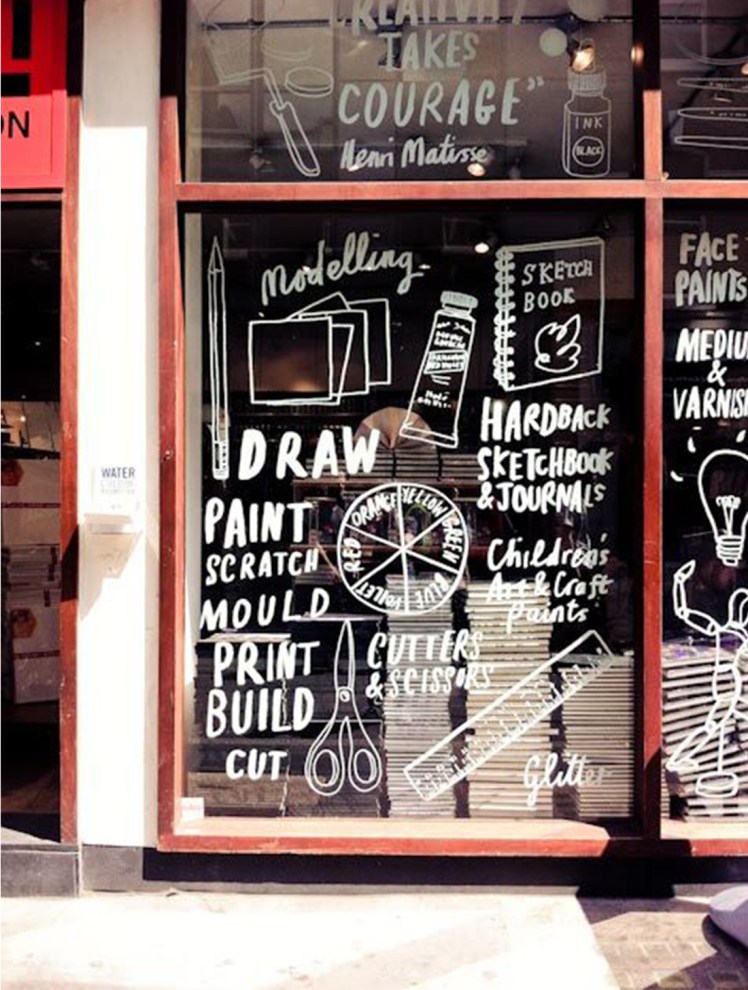 CREATIVITY
TAKES
COURAGE"
Henri Matisse
INK
BLACK
ON
Modelling
SKETCH
BOOK
HARDBACK
SKETCHBOOK
& JOURNALS
DRAW
PAINT
SCRATCH
MOULD
PRINT
BUILD
CUT
RED
ORANGE
YELLOW
GREEN
BLUE
VOILET
CUTTERS
& SCISSORS
Children's
Art & Craft
Paints
Glitter
FACE
PAINTS
MEDIU
&
VARNIS
WATER